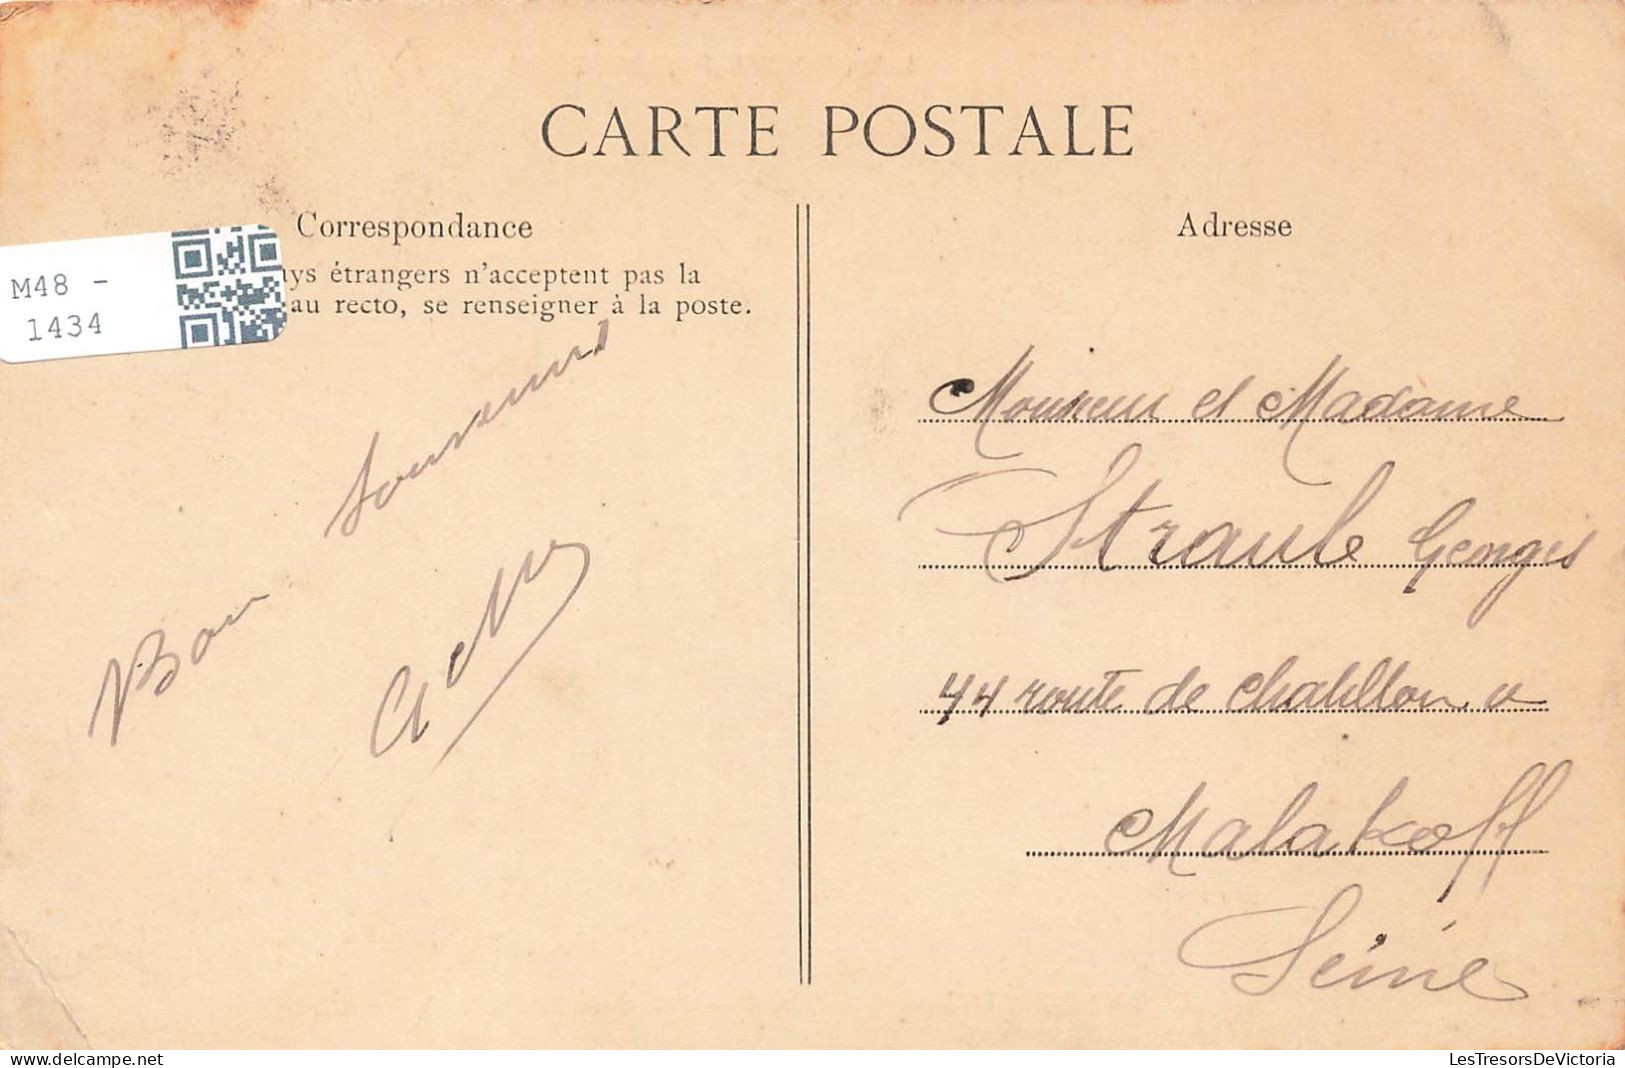 CARTE POSTALE
Correspondance
ays étrangers n'acceptent pas la
au recto, se renseigner à la poste.
M48 -
1434
Bon
Souvenir
Adresse
Monsieur et Madame
Straule Georges
44 route de Chatillon a
Malakoff
Seine
LesTresorsDeVictoria
delcampe.net